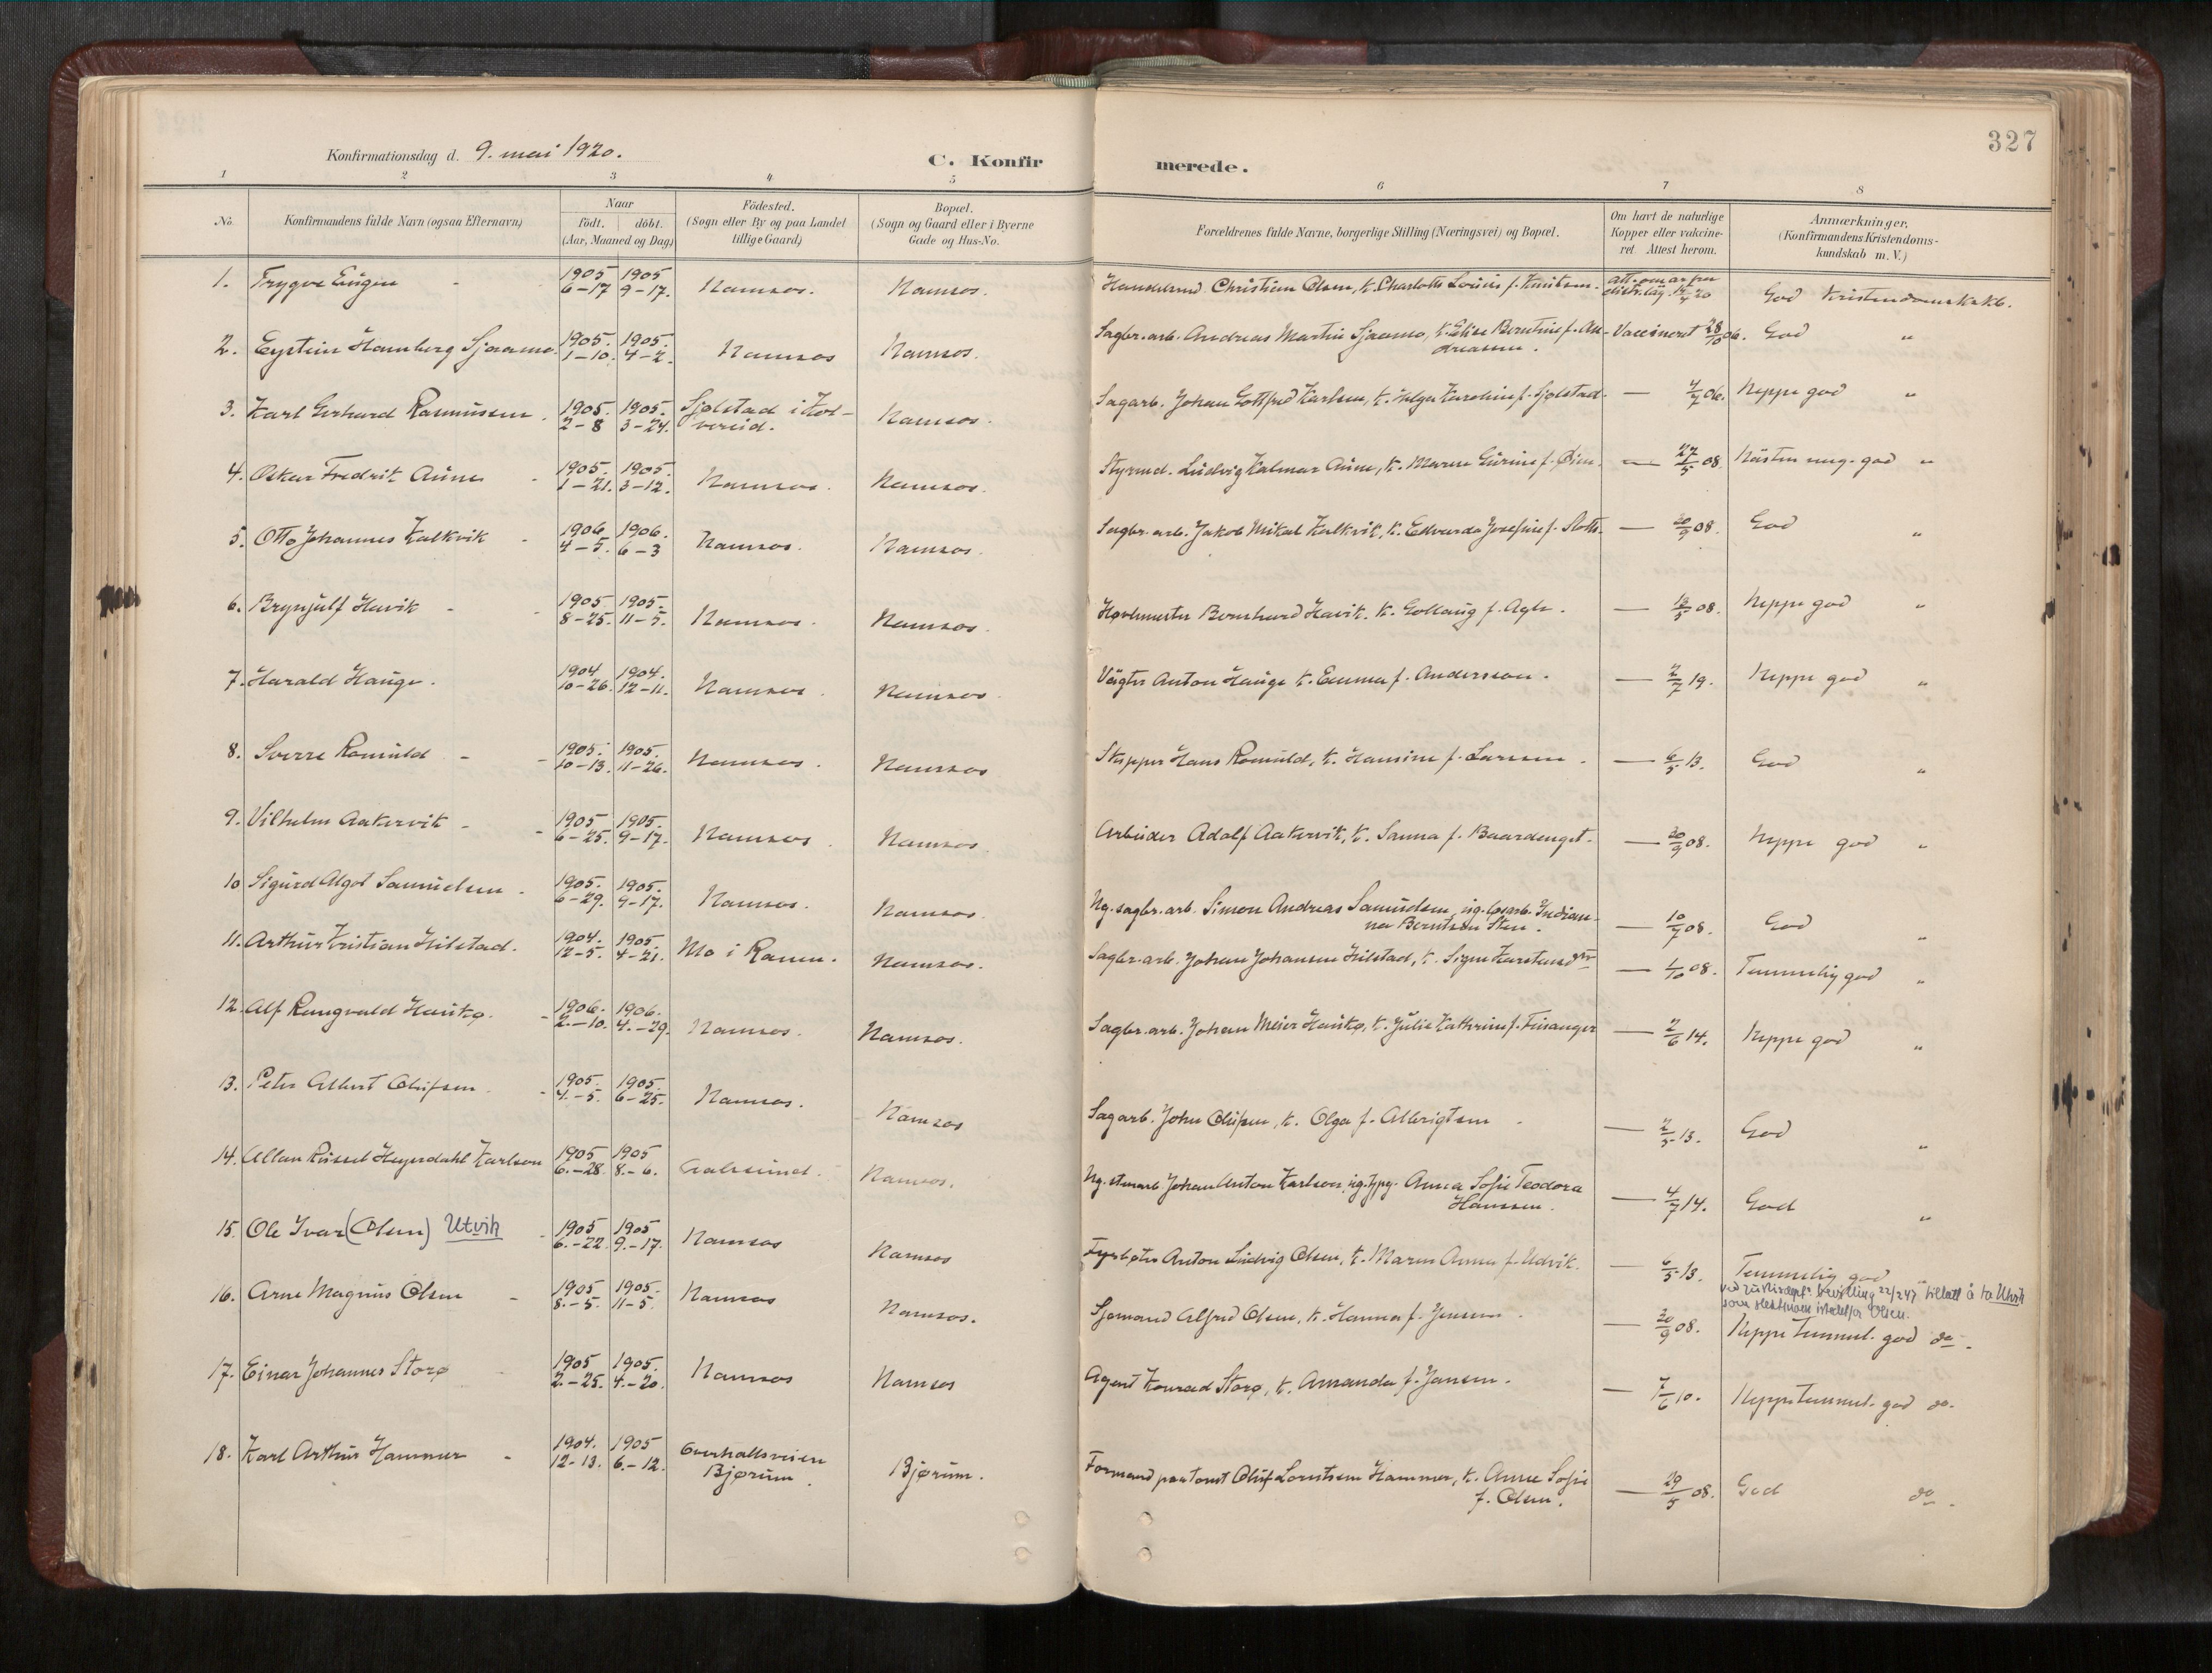 327
Konfirmationsdag d. 9. mai 1920.
C. Konfirmerede.
1 2 3 4 5 6 7 8
No.
Konfirmandens fulde Navn (ogsaa Efternavn)
Naar
födt. döbt.
(Aar, Maaned og Dag)
Födested.
(Sogn eller By og paa Landet
tillige Gaard)
Bopæl.
(Sogn og Gaard eller i Byerne
Gade og Hus-No.
Forældrenes fulde Navne, borgerlige Stilling (Næringsvei) og Bopæl.
Om havt de naturlige
Kopper eller vakcine-
ret. Attest herom.
Anmærkninger,
(Konfirmandens Kristendoms-
kundskab m. V.)
1. Trygve Eugen - 1905 6-17 1905 9-17. Namsos. Namsos. Christian Olsen, k. Charlotte Lovise f. Knutsen. God Kristendomskskb.
2. Eystein Hamberg Sjaamo. 1905. 1-10. 1905. 4-2. Namsos Namsos. Sagbr. arb. Andreas Martin Sjaamo, k. Elise Berntine f. An-
dreassen. Vaccineret 28/10 06. God "
3. Karl Gerhard Rasmussen. 1905. 2-8 1905. 3-24. Sjølstad i Kol-
vereid. Namsos. Sagarb. Johan Gottfred Karlsen, k. Helga Karoline f. Sjølstad. — 4/7 06. Neppe god "
4. Oskar Fredrik Aune - 1905. 1-21. 1905. 3-12. Namsos. Namsos. Styrmd. Ludvig Halmar Aune, k. Maren Gurine f. — 27/5 08. Nästen meg. god "
5. Otto Johannes Kalkvik - 1906 4-5. 1906. 6-3 Namsos. Namsos. Sagbr. arb. Jakob Mikal Kalkvik, k. Edvarda Josefine f. — 20/9 08. God "
6. Brynjulf Havik - 1905 8-25. 1905. 11-5. Namsos. Namsos. Høvlmester Bernhard Havik. k. Gollaug f. Agle. — 13/5 08. Neppe god "
7. Harald Hauge. 1904 10-26. 1904. 12-11. Namsos. Namsos. Vägter Anton Hauge k. Emma f. Andersson. — 2/7 19. Neppe god "
8. Sverre Romuld - 1905. 10-13. 1905. 11-26. Namsos. Namsos Hans Romuld, k. Hansine f. Larssen. — 6/5 13. God "
9. Vilhelm Aakervik - 1905 6-25. 1905. 9-17. Namsos. Namsos. Arbeider Adolf Aakervik, k. Sanna f. Baardenget. — 20/9 08. Neppe god "
10 Sigurd Algot Samuelsen - 1905. 6-29. 1905. 9-17. Namsos. Namsos. Ug. sagbr. arb. Simon Andreas Samuelsen, ug. Indian-
na Berntsen Sten. — 10/7 08. God "
11. Arthur Kristian Hilstad. 1904. 12-5. 1905 4-21. Mo i Ranen. Namsos. Sagbr. arb. Johan Johansen Hilstad, k. Signe — 1/10 08. Temmelig god "
12. Alf Rangvald Haukø. - 1906. 2.-10. 1906. 4.-29. Namsos. Namsos. Sagbr. arb. Johan Meier Haukø, k. Julie Kathrine f. Finanger — 2/6 14. Neppe god "
13. Peter Albert Olufsen. - 1905. 4.-5. 1905. 6-25. Namsos. Namsos Sagarb. John Olufsen, k. Olga f. Albrigtsen — 2/5 13. God "
14. Allan Russel Heyerdahl Karlson 1905 6.-28. 1905 8.-6. Aalesund. Namsos. Ug. stenarb Johan Anton Karlson, ug. Anna Sofie Teodora
Hanssen. — 4/7 14. God "
15. Ole Ivar (Olsen) Utvik - 1905 6.-22. 1905 9.-17. Namsos Namsos Fyrbøter Anton Ludvig Olsen, k. Maren Anna f. Udvik. — 6/5 13. Temmelig god "
ved justisdept^s bevilling 22/2 47 tillatt å ta Utvik
som slektsnavn istedetfor Olsen.
16. Arne Magnus Olsen - 1905 8.-5. 1905. 11-5. Namsos Namsos. Sjømand Alfred Olsen, k. Hanna f. Jensen. — 20/9 08. Neppe Temmel. god do.
17. Einar Johannes Storø 1905 2.-25. 1905. 4.-20. Namsos Namsos Agent Konrad Storø, k. Amanda f. Jansen. — 7/6 10. Neppe temmel. god do.
18. Karl Arthur Hammer - 1904. 12-13. 1905 6.-12. Overhallsveien
Bjørum. Bjørum. Formand paa tomt Oluf Lorntsen Hammer, k. Anne Sofie
f. Olsen. — 29/5 08. God do.